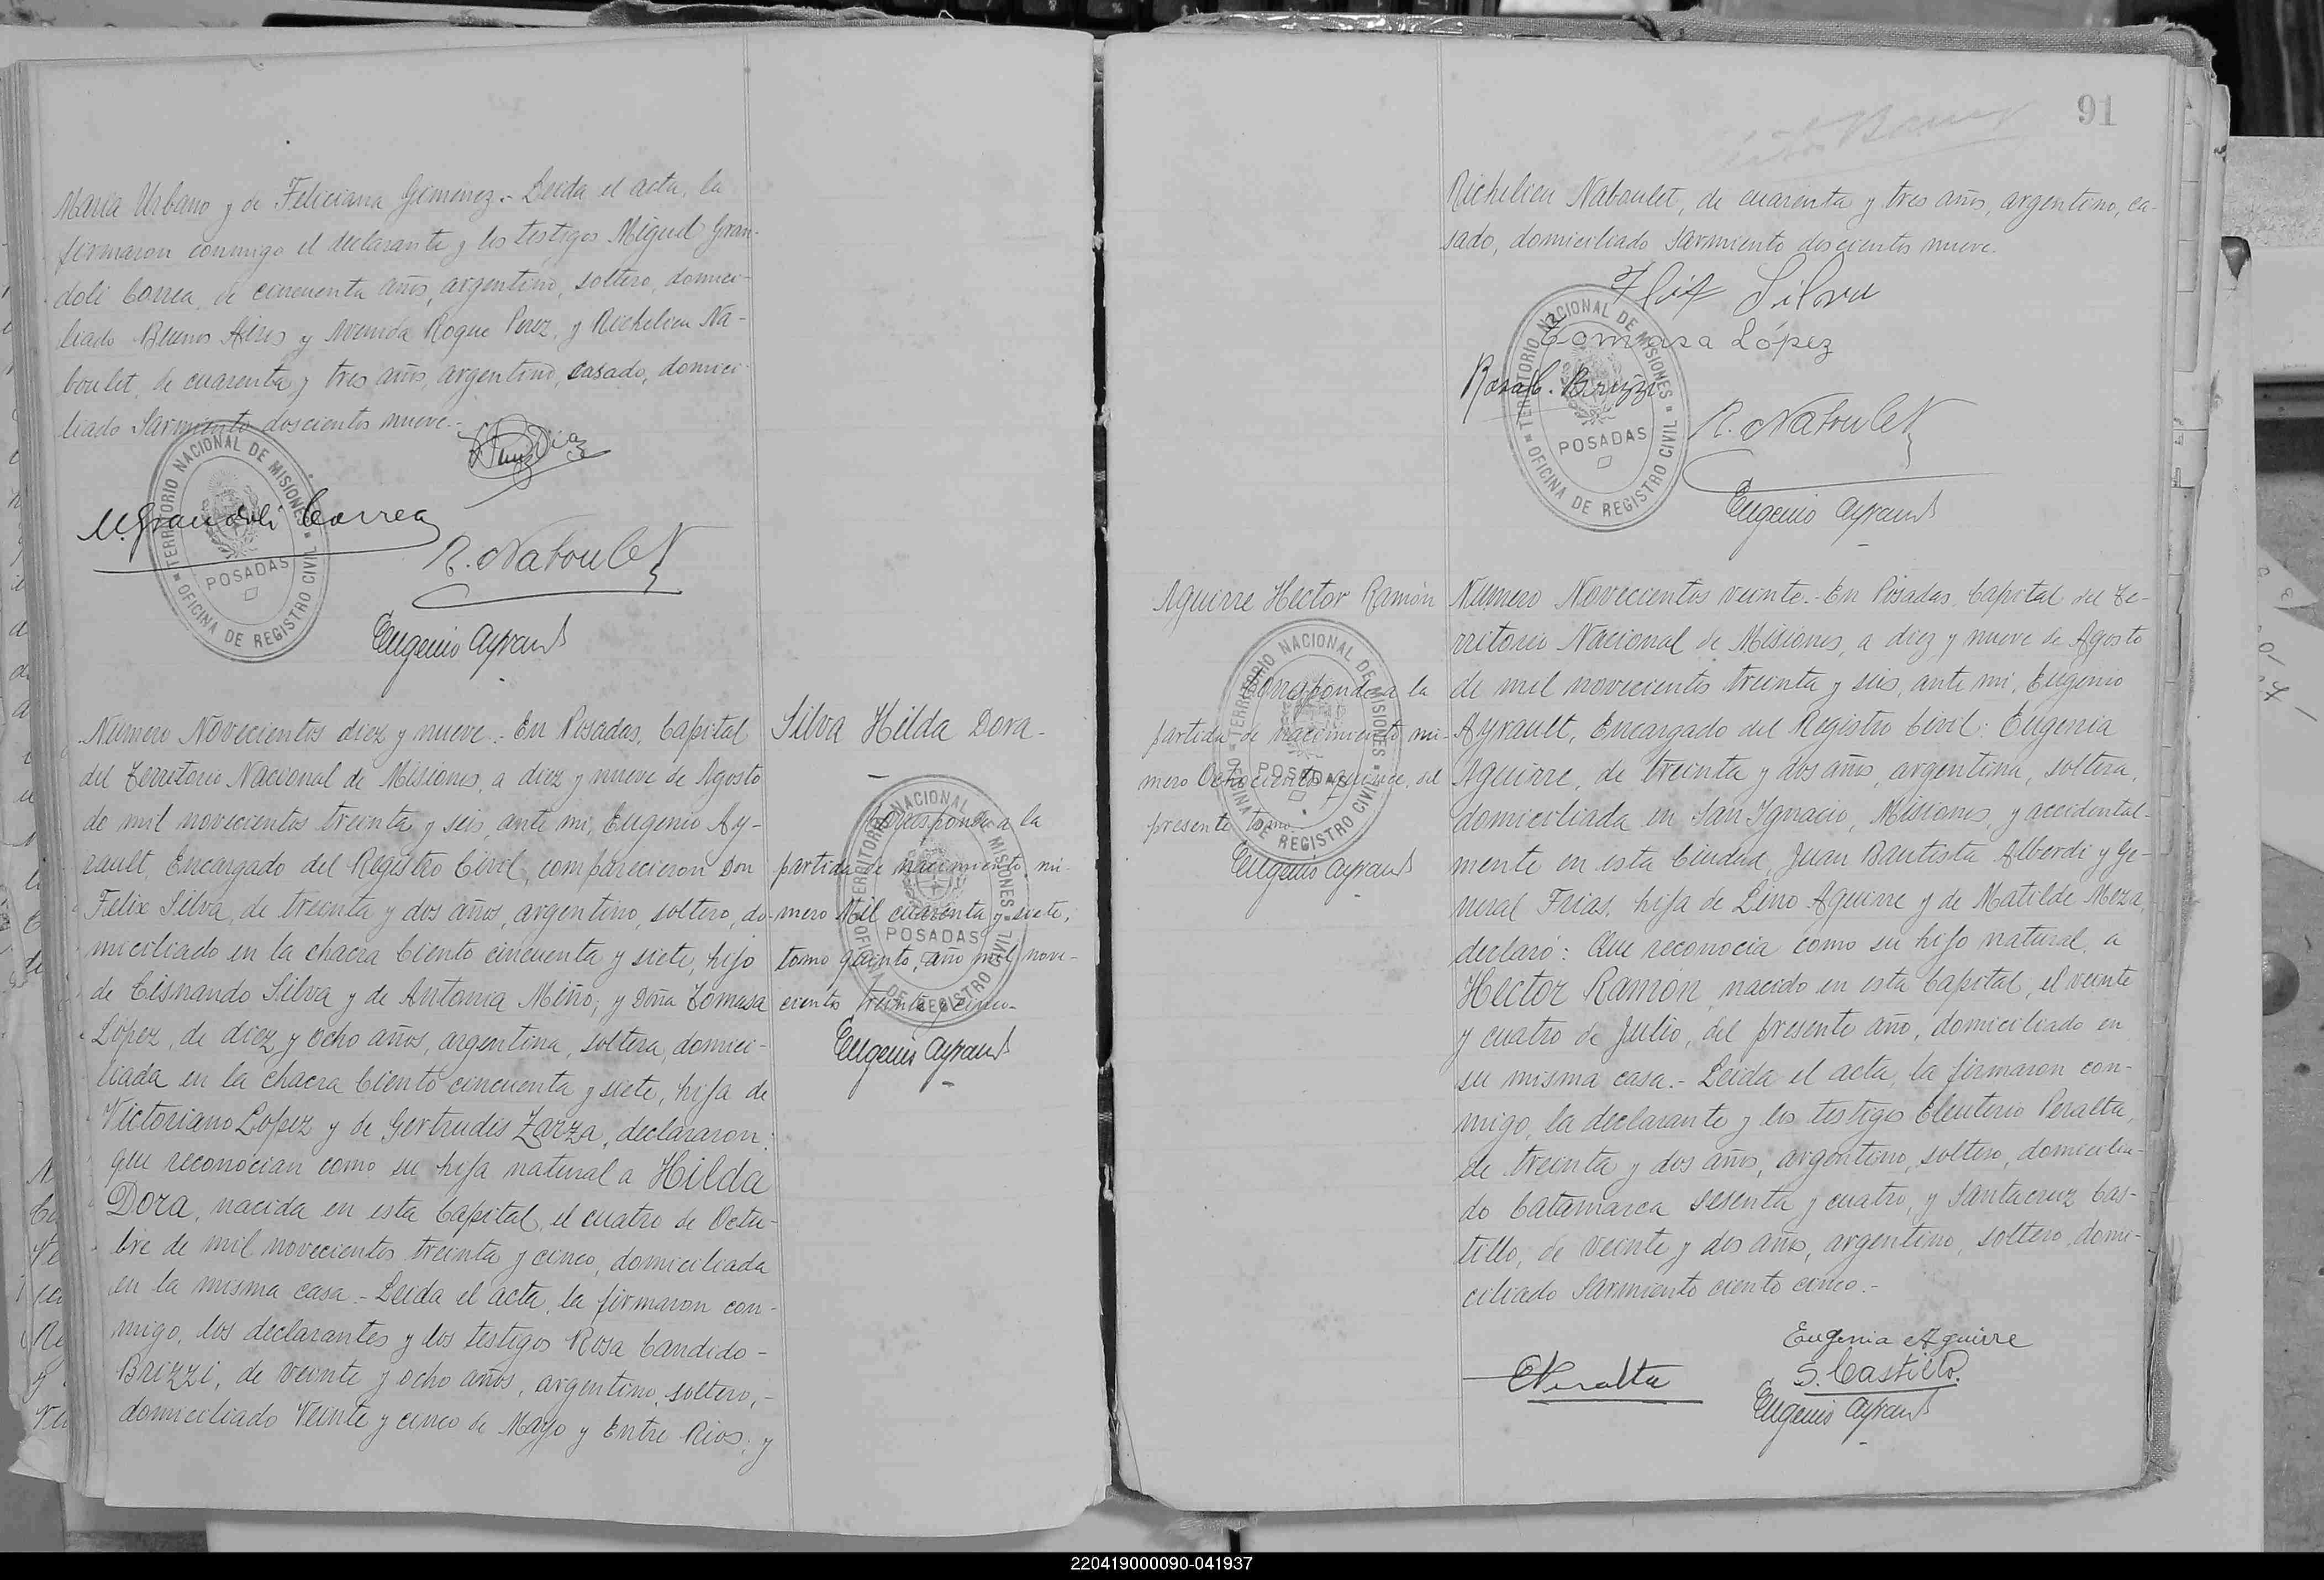 Maria Urbano y de Feliciana Gimenez.- Leida el acta, la
firmaron conmigo el declarante y los testigos Miguel Gran-
doli Correa, de cincuenta años, argentino, soltero, domici-
liado Buenos Aires y Avenida Roque Perez, y Richelieu Na-
boulet, de cuarenta y tres años, argentino, casado, domici-
liado Sarmiento doscientos nueve.-
TERRITORIO NACIONAL DE MISIONES
POSADAS
OFICINA DE REGISTRO CIVIL
M. Grandoli Correa
R. Naboulet
Eugenio Ayrault
Numero Novecientos diez y nueve.- En Posadas, Capital
del Territorio Nacional de Misiones, a diez y nueve de Agosto
de mil novecientos treinta y seis, ante mi, Eugenio Ay-
rault, Encargado del Registro Civil, comparecieron Don
Felix Silva, de treinta y dos años, argentino, soltero, do-
miciliado en la chacra Ciento cincuenta y siete, hijo
de Cisnando Silva y de Antonia Miño; y Doña Tomasa
López, de diez y ocho años, argentina, soltera, domici-
liada en la chacra Ciento cincuenta y siete, hija de
Victoriano Lopez y de Gertrudis Zarza, declararon:
que reconocian como su hija natural a Hilda
Dora, nacida en esta Capital, el cuatro de Octu-
bre de mil novecientos treinta y cinco, domiciliada
en la misma casa.- Leida el acta, la firmaron con-
migo, los declarantes y los testigos Rosa Candido-
Brizzi, de veinte y ocho años, argentino, soltero,-
domiciliado Veinte y cinco de Mayo y Entre Rios; y
Silva Hilda Dora-
Corresponde a la
partida de nacimiento nú-
mero Mil cuarenta y siete,
tomo quinto, año mil nove-
cientos treinta y cinco.-
TERRITORIO NACIONAL DE MISIONES
POSADAS
OFICINA DE REGISTRO CIVIL
Eugenio Ayrault
91
Richelieu Naboulet, de cuarenta y tres años, argentino, ca-
sado, domiciliado Sarmiento doscientos nueve.
Felix Silva
Tomasa López
Rosa C. Brizzi
TERRITORIO NACIONAL DE MISIONES
POSADAS
OFICINA DE REGISTRO CIVIL
R. Naboulet
Eugenio Ayrault
Aguirre Hector Ramón
Corresponde a la
partida de nacimiento nú-
mero Ochocientos quince, del
presente tomo.
TERRITORIO NACIONAL DE MISIONES
POSADAS
OFICINA DE REGISTRO CIVIL
Eugenio Ayrault
Numero Novecientos veinte.- En Posadas, Capital del Te-
rritorio Nacional de Misiones, a diez y nueve de Agosto
de mil novecientos treinta y seis, ante mi, Eugenio
Ayrault, Encargado del Registro Civil: Eugenia
Aguirre, de treinta y dos años, argentina, soltera,
domiciliada en San Ignacio, Misiones, y accidental-
mente en esta Ciudad, Juan Bautista Alberdi y Ge-
neral Frias, hija de Lino Aguirre y de Matilde Meza,
declaró: Que reconocia como su hijo natural, a
Hector Ramon, nacido en esta Capital, el veinte
y cuatro de Julio, del presente año, domiciliado en
su misma casa.- Leida el acta, la firmaron con-
migo, la declarante y los testigos Eleuterio Peralta,
de treinta y dos años, argentino, soltero, domicilia-
do Catamarca sesenta y cuatro, y Santacruz Cas-
tillo, de veinte y dos años, argentino, soltero, domi-
ciliado Sarmiento ciento cinco.-
Eugenia Aguirre
E Peralta
S. Castillo.
Eugenio Ayrault
220419000090-041937